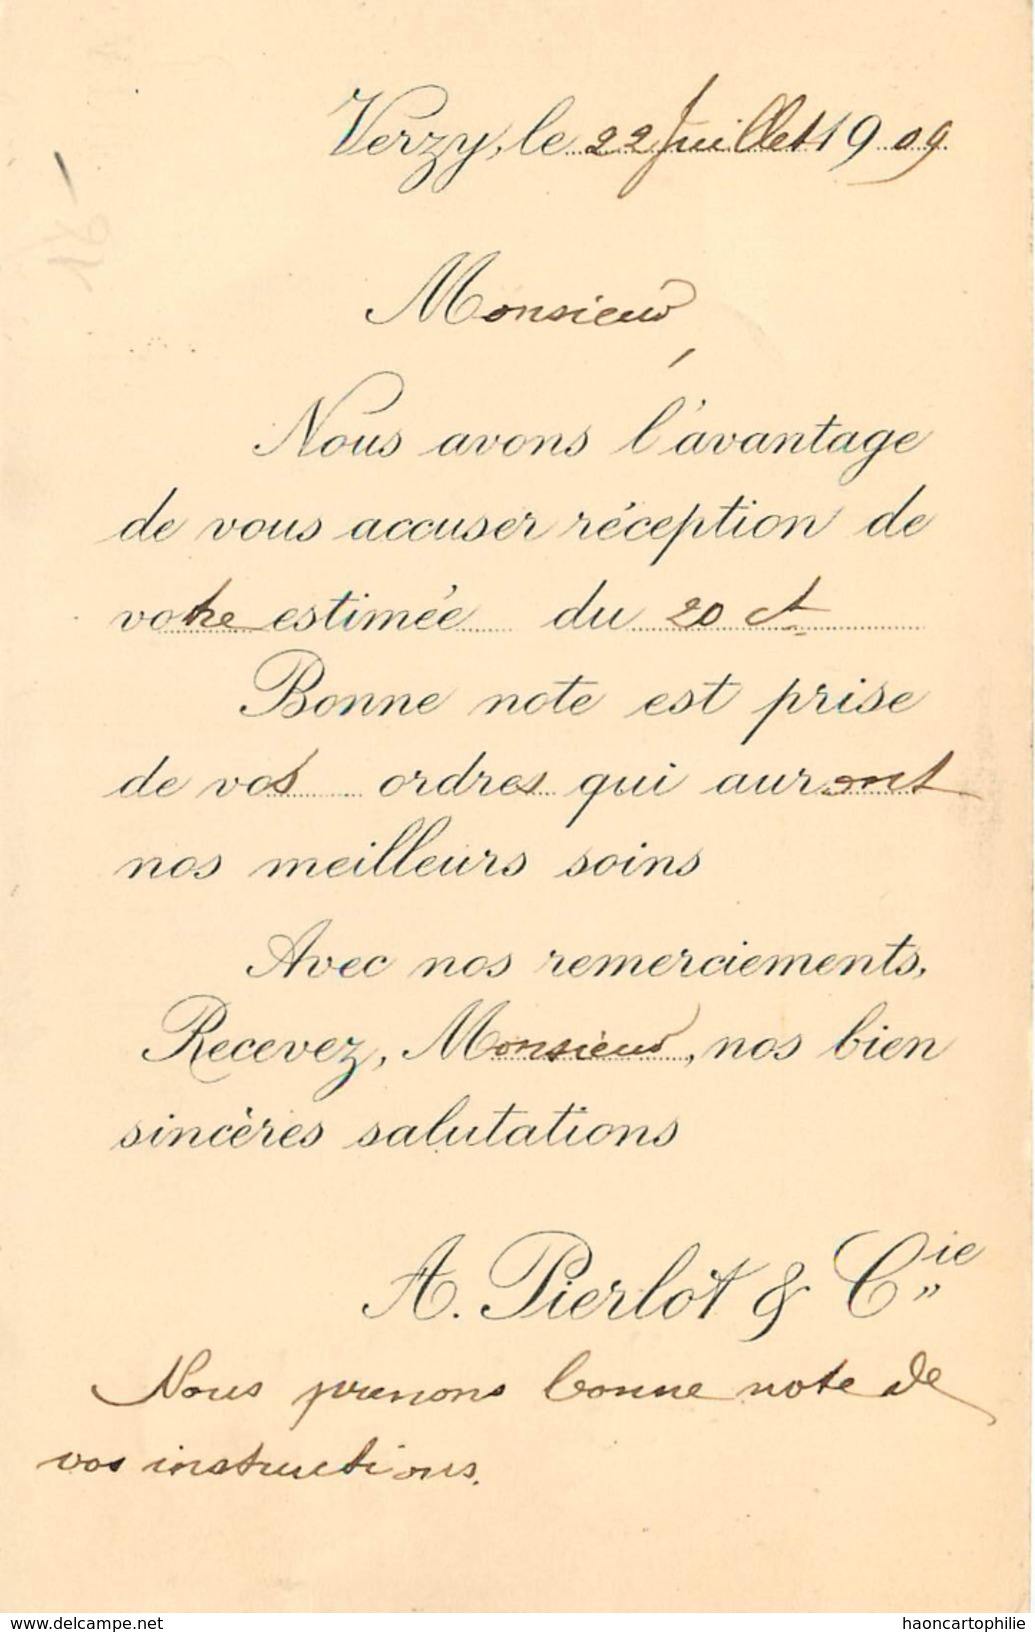 Verzy, le 22 Juillet 1909
Monsieur,
Nous avons l'avantage
de vous accuser réception de
votre estimée du 20 ct
Bonne note est prise
de vos ordres qui auront
nos meilleurs soins
Avec nos remerciements,
Recevez, Monsieur, nos bien
sincères salutations
A. Pierlot & Cie
Nous prenons bonne note de
vos instructions.
www.delcampe.net
haoncartophilie